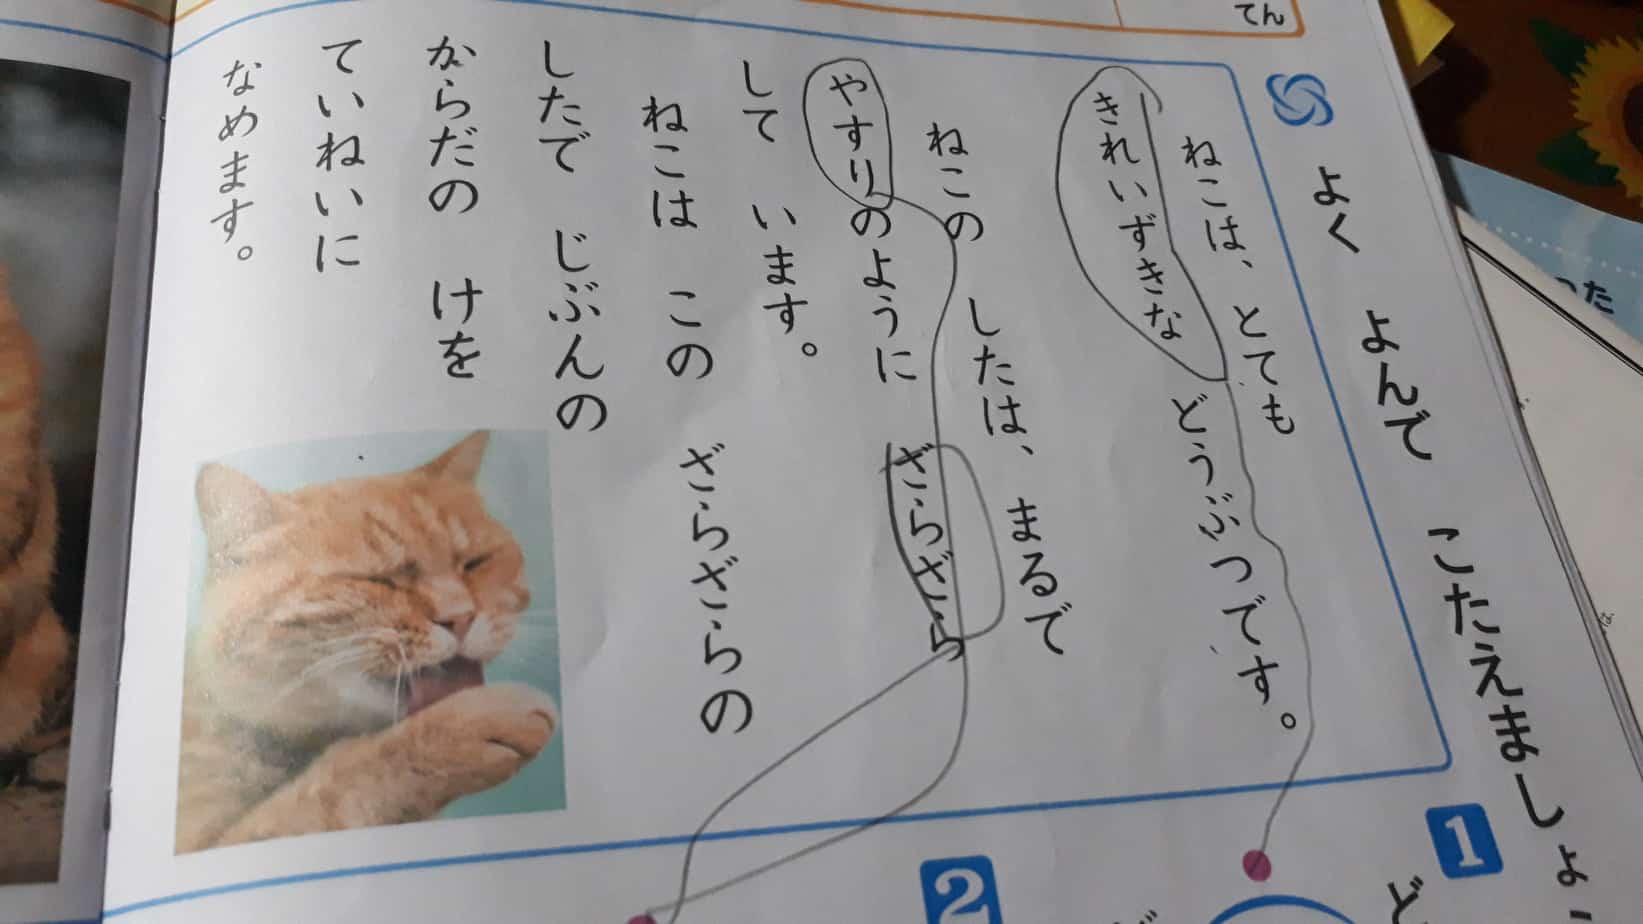 てん
よく よんで こたえましょ
ねこは、とても
きれいずきな どうぶつです。
ねこの したは、まるで
やすりのように ざらざら
して います。
ねこは この ざらざらの
したで じぶんの
からだの けを
ていねいに
なめます。
1
ど
2
った